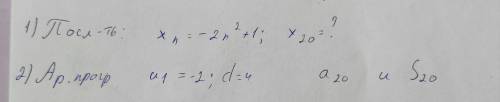 1) Посл-ть: xₙ = -2n² + 1; x₂₀ = ?
2) Ар. прогр a₁ = -2; d = 4 a₂₀ и S₂₀